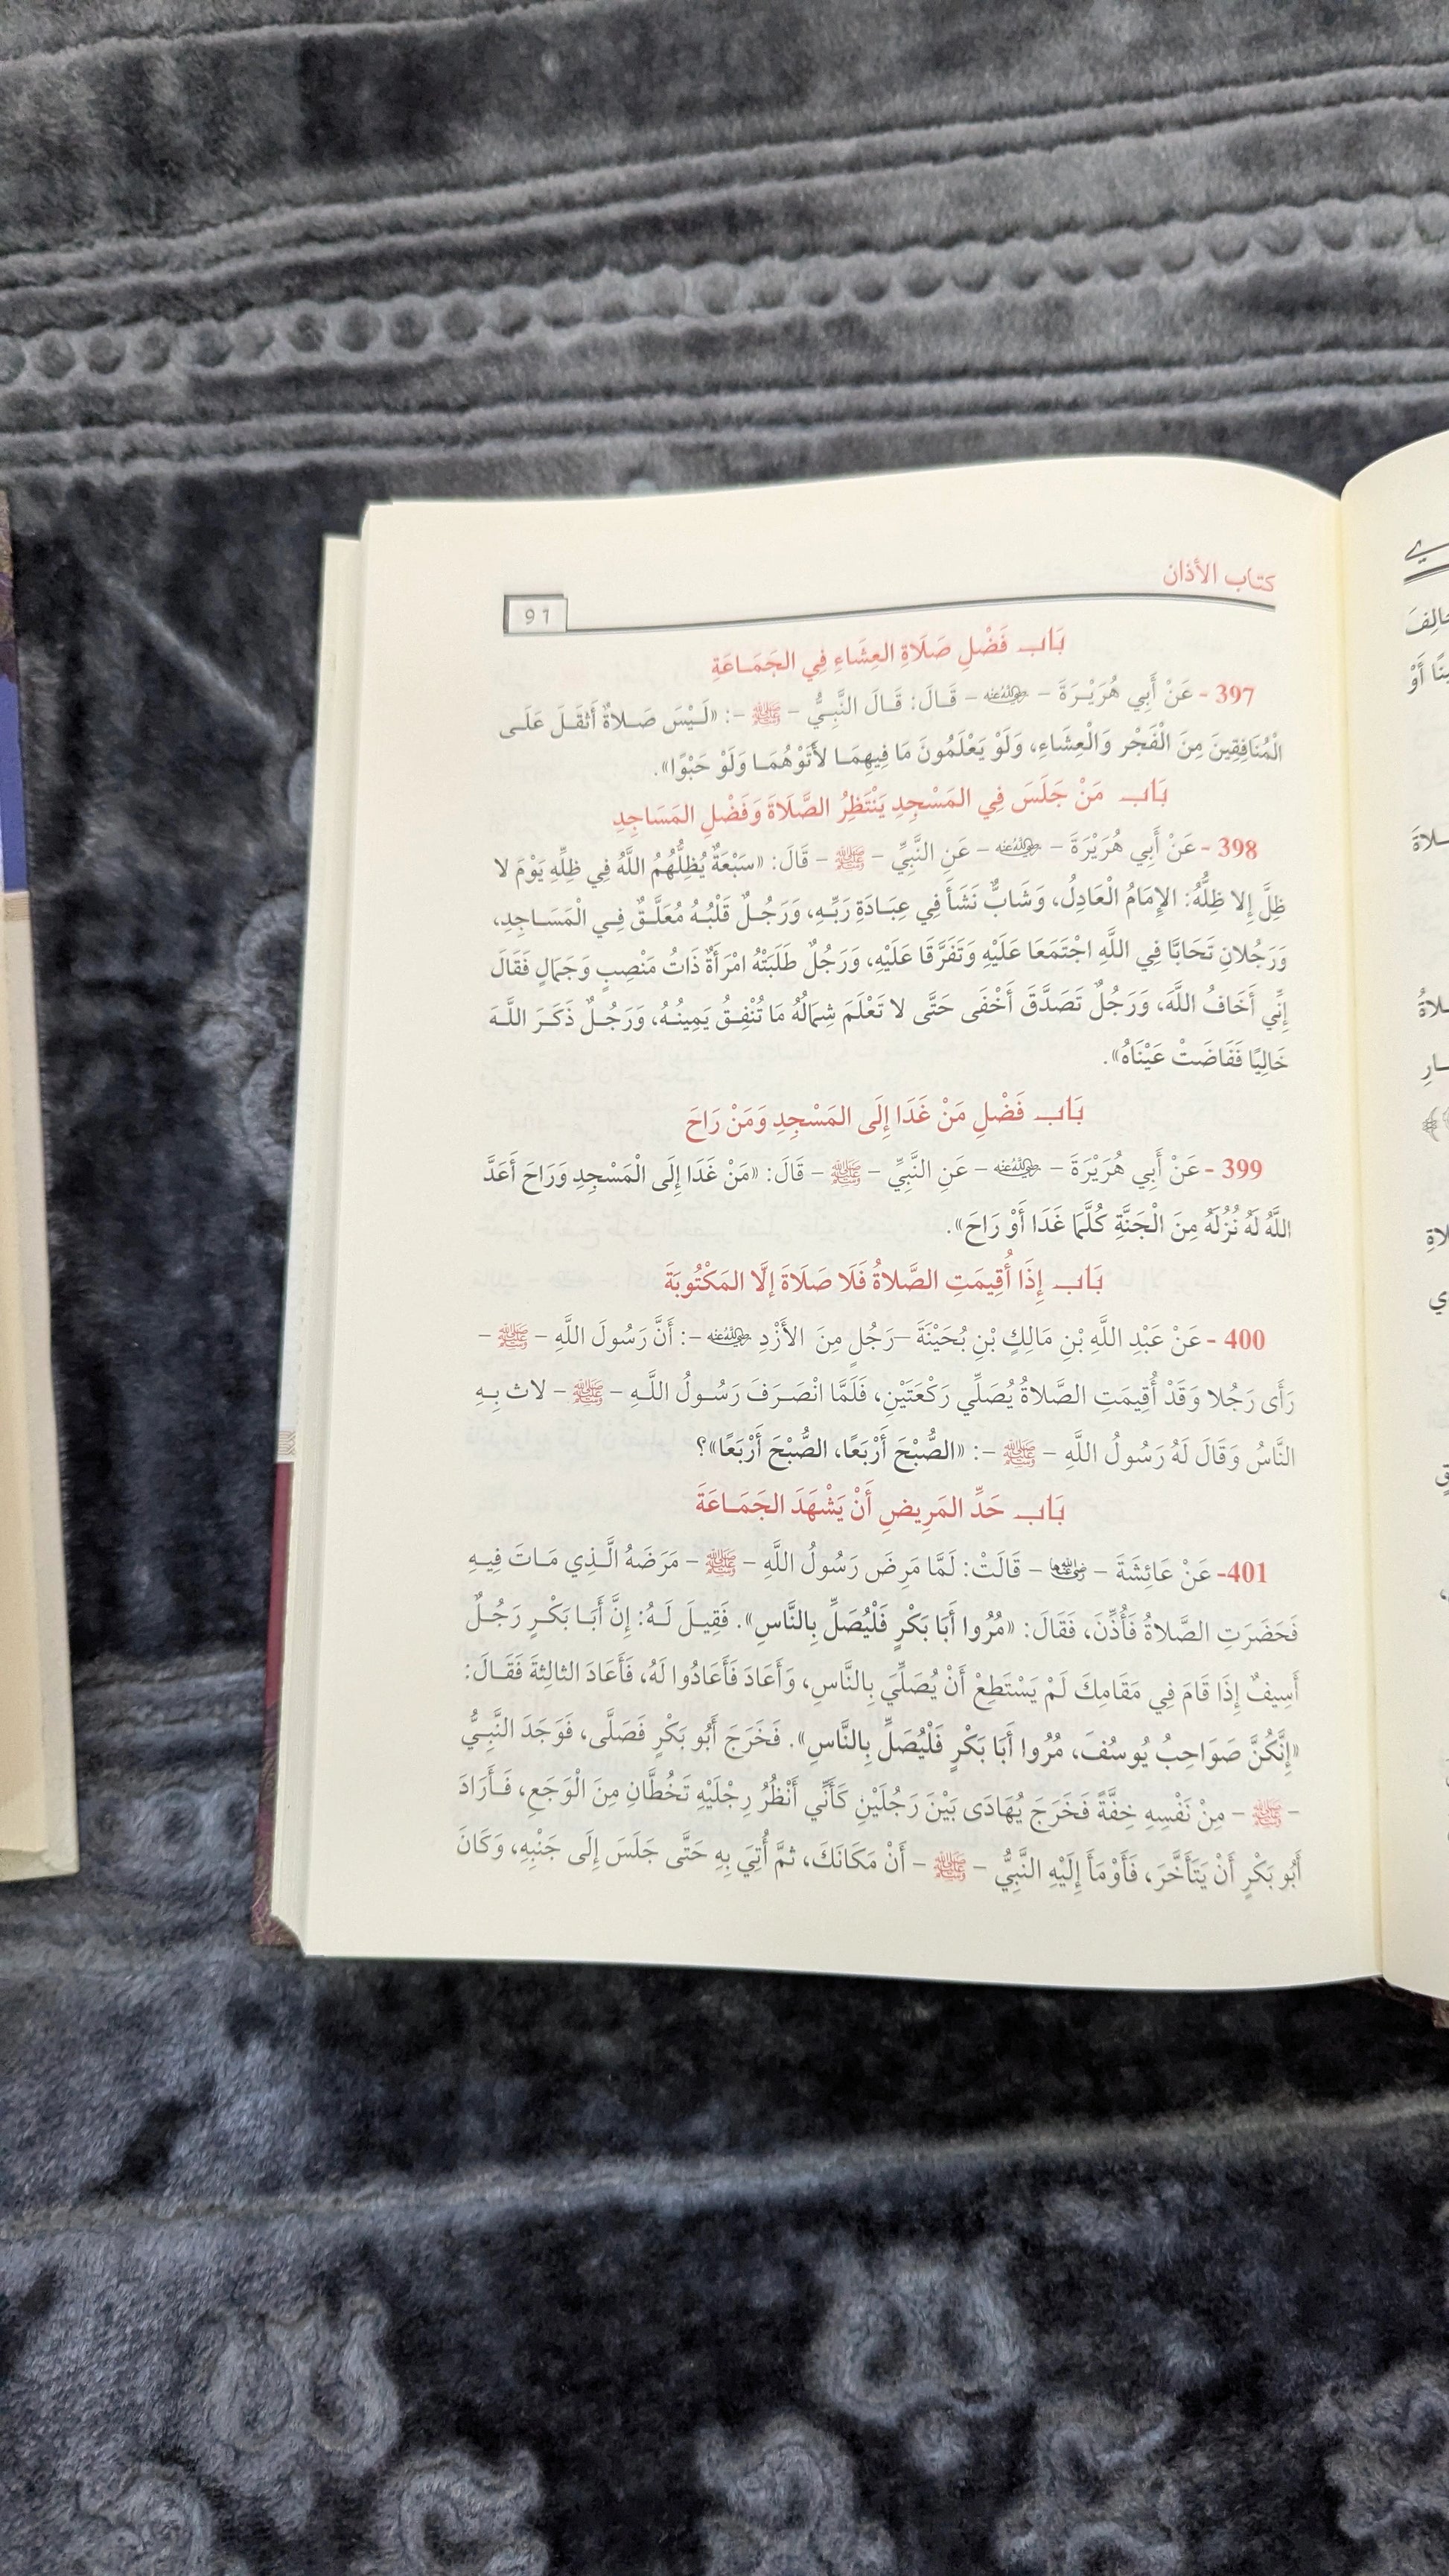 كتاب الأذان
91
بَاب فَضْلِ صَلَاةِ العِشَاءِ فِي الجَمَاعَةِ
397 - عَنْ أَبِي هُرَيْرَةَ – رضي الله عنه – قَالَ: قَالَ النَّبِيُّ – ﷺ –: «لَيْسَ صَلاةٌ أَثْقَلَ عَلَى
الْمُنَافِقِينَ مِنَ الْفَجْرِ وَالْعِشَاءِ، وَلَوْ يَعْلَمُونَ مَا فِيهِمَا لأَتَوْهُمَا وَلَوْ حَبْوًا».
بَاب مَنْ جَلَسَ فِي المَسْجِدِ يَنْتَظِرُ الصَّلَاةَ وَفَضْلِ المَسَاجِدِ
398 - عَنْ أَبِي هُرَيْرَةَ – رضي الله عنه – عَنِ النَّبِيِّ – ﷺ – قَالَ: «سَبْعَةٌ يُظِلُّهُمُ اللَّهُ فِي ظِلِّهِ يَوْمَ لا
ظِلَّ إِلا ظِلُّهُ: الإِمَامُ الْعَادِلُ، وَشَابٌّ نَشَأَ فِي عِبَادَةِ رَبِّهِ، وَرَجُلٌ قَلْبُهُ مُعَلَّقٌ فِي الْمَسَاجِدِ،
وَرَجُلانِ تَحَابَّا فِي اللَّهِ اجْتَمَعَا عَلَيْهِ وَتَفَرَّقَا عَلَيْهِ، وَرَجُلٌ طَلَبَتْهُ امْرَأَةٌ ذَاتُ مَنْصِبٍ وَجَمَالٍ فَقَالَ
إِنِّي أَخَافُ اللَّهَ، وَرَجُلٌ تَصَدَّقَ أَخْفَى حَتَّى لا تَعْلَمَ شِمَالُهُ مَا تُنْفِقُ يَمِينُهُ، وَرَجُلٌ ذَكَرَ اللَّهَ
خَالِيًا فَفَاضَتْ عَيْنَاهُ».
بَاب فَضْلِ مَنْ غَدَا إِلَى المَسْجِدِ وَمَنْ رَاحَ
399 - عَنْ أَبِي هُرَيْرَةَ – رضي الله عنه – عَنِ النَّبِيِّ – ﷺ – قَالَ: «مَنْ غَدَا إِلَى الْمَسْجِدِ وَرَاحَ أَعَدَّ
اللَّهُ لَهُ نُزُلَهُ مِنَ الْجَنَّةِ كُلَّمَا غَدَا أَوْ رَاحَ».
بَاب إِذَا أُقِيمَتِ الصَّلاةُ فَلَا صَلَاةَ إِلَّا المَكْتُوبَةَ
400 - عَنْ عَبْدِ اللَّهِ بْنِ مَالِكٍ بْنِ بُحَيْنَةَ –رَجُلٍ مِنَ الأَزْدِ رضي الله عنه –: أَنَّ رَسُولَ اللَّهِ – ﷺ –
رَأَى رَجُلا وَقَدْ أُقِيمَتِ الصَّلاةُ يُصَلِّي رَكْعَتَيْنِ، فَلَمَّا انْصَرَفَ رَسُولُ اللَّهِ – ﷺ – لاث بِهِ
النَّاسُ وَقَالَ لَهُ رَسُولُ اللَّهِ – ﷺ –: «الصُّبْحَ أَرْبَعًا، الصُّبْحَ أَرْبَعًا»؟
بَاب حَدِّ المَرِيضِ أَنْ يَشْهَدَ الجَمَاعَةَ
401- عَنْ عَائِشَةَ – رضي الله عنها – قَالَتْ: لَمَّا مَرِضَ رَسُولُ اللَّهِ – ﷺ – مَرَضَهُ الَّذِي مَاتَ فِيهِ
فَحَضَرَتِ الصَّلاةُ فَأُذِّنَ، فَقَالَ: «مُرُوا أَبَا بَكْرٍ فَلْيُصَلِّ بِالنَّاسِ». فَقِيلَ لَهُ: إِنَّ أَبَا بَكْرٍ رَجُلٌ
أَسِيفٌ إِذَا قَامَ فِي مَقَامِكَ لَمْ يَسْتَطِعْ أَنْ يُصَلِّيَ بِالنَّاسِ، وَأَعَادَ فَأَعَادُوا لَهُ، فَأَعَادَ الثالِثةَ فَقَالَ:
«إِنَّكُنَّ صَوَاحِبُ يُوسُفَ، مُرُوا أَبَا بَكْرٍ فَلْيُصَلِّ بِالنَّاسِ». فَخَرَجَ أَبُو بَكْرٍ فَصَلَّى، فَوَجَدَ النَّبِيُّ
– ﷺ – مِنْ نَفْسِهِ خِفَّةً فَخَرَجَ يُهَادَى بَيْنَ رَجُلَيْنِ كَأَنِّي أَنْظُرُ رِجْلَيْهِ تَخُطَّانِ مِنَ الْوَجَعِ، فَأَرَادَ
أَبُو بَكْرٍ أَنْ يَتَأَخَّرَ، فَأَوْمَأَ إِلَيْهِ النَّبِيُّ – ﷺ – أَنْ مَكَانَكَ، ثمَّ أُتِيَ بِهِ حَتَّى جَلَسَ إِلَى جَنْبِهِ، وَكَانَ